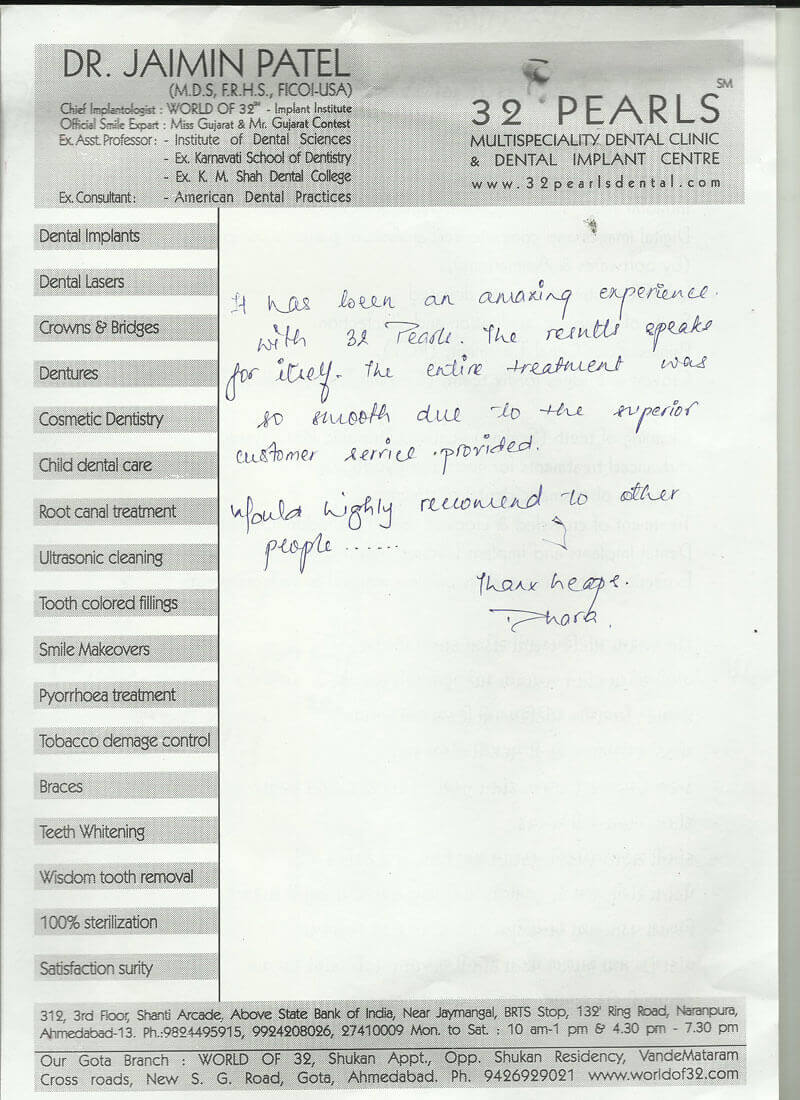 DR. JAIMIN PATEL
(M.D.S, F.R.H.S., FICOI-USA)
Chief Implantologist : WORLD OF 32™ - Implant Institute
Official Smile Expert : Miss Gujarat & Mr. Gujarat Contest
Ex. Asst. Professor : - Institute of Dental Sciences
- Ex. Karnavati School of Dentistry
- Ex. K. M. Shah Dental College
Ex. Consultant : - American Dental Practices
32 PEARLS SM
MULTISPECIALITY DENTAL CLINIC
& DENTAL IMPLANT CENTRE
www.32pearlsdental.com
Dental Implants
Dental Lasers
Crowns & Bridges
Dentures
Cosmetic Dentistry
Child dental care
Root canal treatment
Ultrasonic cleaning
Tooth colored fillings
Smile Makeovers
Pyorrhoea treatment
Tobacco demage control
Braces
Teeth Whitening
Wisdom tooth removal
100% sterilization
Satisfaction surity
It has been an amazing experience.
with 32 Pearls. The results speaks
for itself. The entire treatment was
so smooth due to the superior
customer service provided.
Would highly reccomend to other
people ......
Thanx heaps.
Dhara.
312, 3rd Floor, Shanti Arcade, Above State Bank of India, Near Jaymangal, BRTS Stop, 132' Ring Road, Naranpura,
Ahmedabad-13. Ph.:9824495915, 9924208026, 27410009 Mon. to Sat. : 10 am-1 pm & 4.30 pm - 7.30 pm
Our Gota Branch : WORLD OF 32, Shukan Appt., Opp. Shukan Residency, VandeMataram
Cross roads, New S. G. Road, Gota, Ahmedabad. Ph. 9426929021 www.worldof32.com